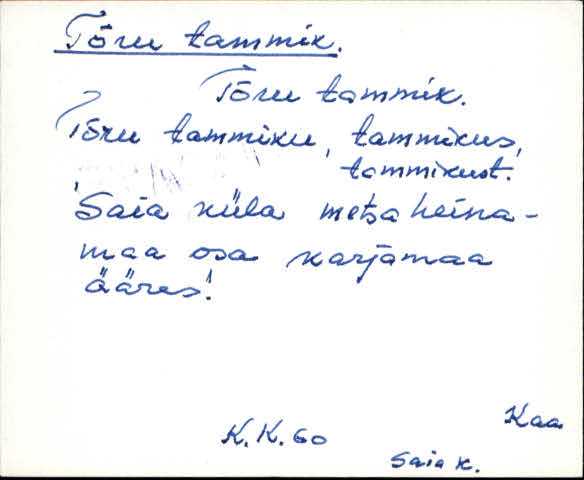 Tõru tammik.
Tõru tammik.
Tõru tammiku, tammikus,
tammikust.
'Saia küla metsa heina-
maa osa karjamaa
ääres!'
Kaa
K. K. 60
Saia k.